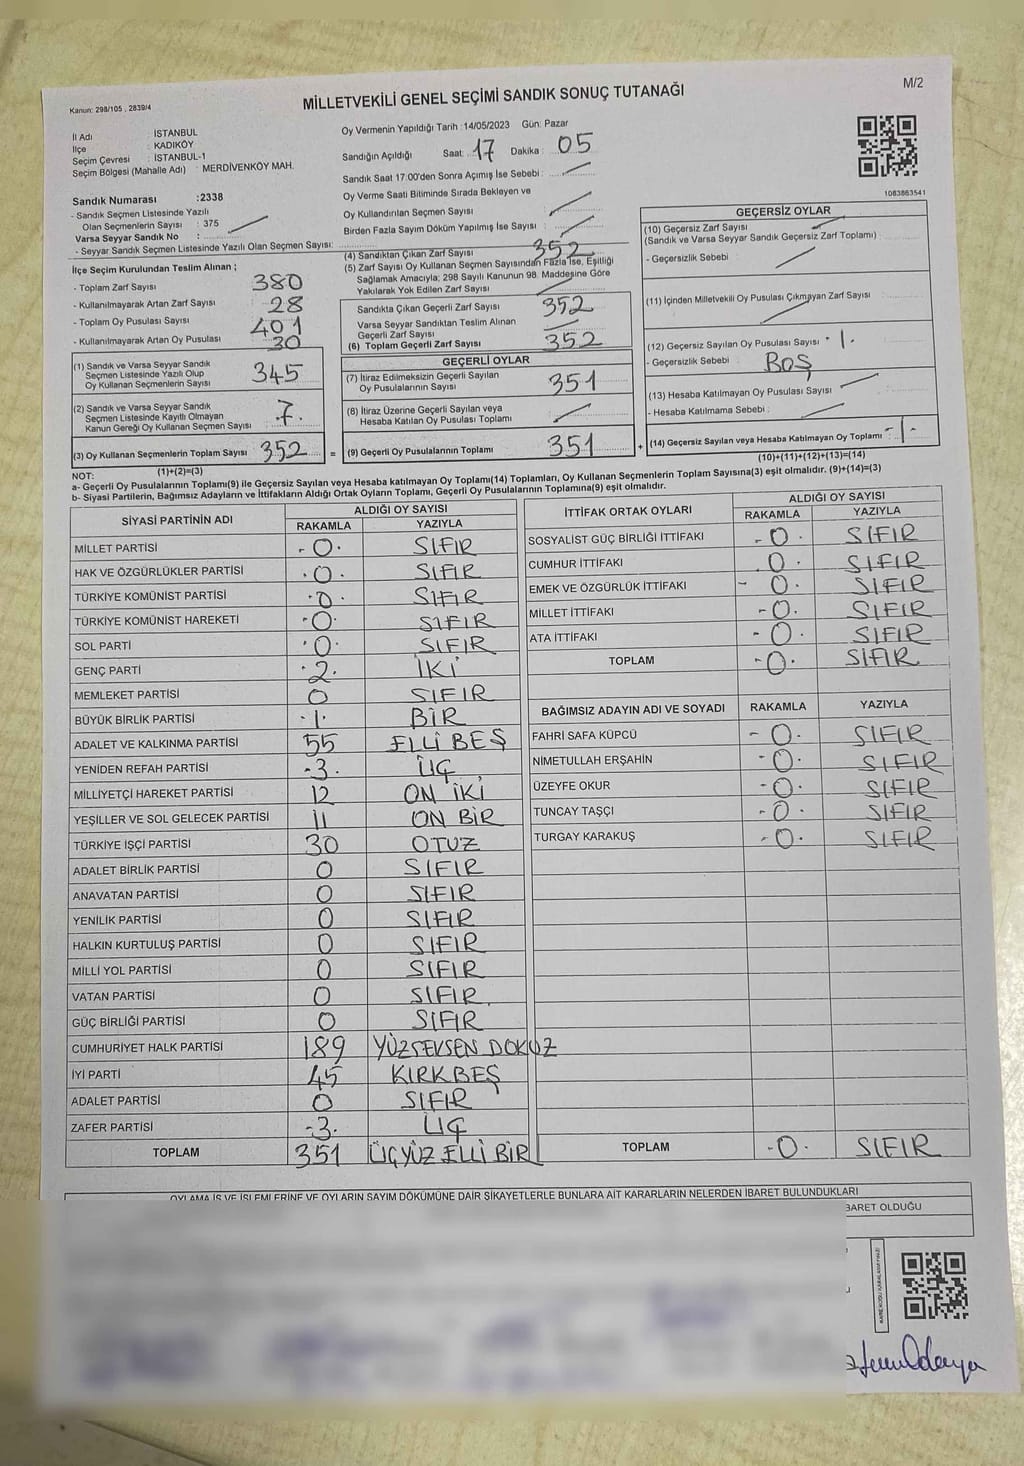 Kanun: 298/105 , 2839/4
MİLLETVEKİLİ GENEL SEÇİMİ SANDIK SONUÇ TUTANAĞI
M/2
İl Adı : İSTANBUL
İlçe : KADIKÖY
Seçim Çevresi : İSTANBUL-1
Seçim Bölgesi (Mahalle Adı) : MERDİVENKÖY MAH.
Oy Vermenin Yapıldığı Tarih :14/05/2023 Gün: Pazar
Sandığın Açıldığı Saat: 17 Dakika : 05
Sandık Saat 17:00'den Sonra Açılmış İse Sebebi :
Oy Verme Saati Bitiminde Sırada Bekleyen ve
Oy Kullandırılan Seçmen Sayısı
Birden Fazla Sayım Döküm Yapılmış İse Sayısı :
1083863541
Sandık Numarası :2338
- Sandık Seçmen Listesinde Yazılı
Olan Seçmenlerin Sayısı : 375
Varsa Seyyar Sandık No :
- Seyyar Sandık Seçmen Listesinde Yazılı Olan Seçmen Sayısı:
İlçe Seçim Kurulundan Teslim Alınan ;
- Toplam Zarf Sayısı 380
- Kullanılmayarak Artan Zarf Sayısı 28
- Toplam Oy Pusulası Sayısı 401
- Kullanılmayarak Artan Oy Pusulası 30
(1) Sandık ve Varsa Seyyar Sandık
Seçmen Listesinde Yazılı Olup
Oy Kullanan Seçmenlerin Sayısı 345
(2) Sandık ve Varsa Seyyar Sandık
Seçmen Listesinde Kayıtlı Olmayan
Kanun Gereği Oy Kullanan Seçmen Sayısı 7.
(3) Oy Kullanan Seçmenlerin Toplam Sayısı 352 =
(1)+(2)=(3)
(4) Sandıktan Çıkan Zarf Sayısı 352
(5) Zarf Sayısı Oy Kullanan Seçmen Sayısından Fazla İse, Eşitliği
Sağlamak Amacıyla; 298 Sayılı Kanunun 98. Maddesine Göre
Yakılarak Yok Edilen Zarf Sayısı
Sandıkta Çıkan Geçerli Zarf Sayısı 352
Varsa Seyyar Sandıktan Teslim Alınan
Geçerli Zarf Sayısı
(6) Toplam Geçerli Zarf Sayısı 352
GEÇERLİ OYLAR
(7) İtiraz Edilmeksizin Geçerli Sayılan
Oy Pusulalarının Sayısı 351
(8) İtiraz Üzerine Geçerli Sayılan veya
Hesaba Katılan Oy Pusulası Toplamı
(9) Geçerli Oy Pusulalarının Toplamı 351 +
GEÇERSİZ OYLAR
(10) Geçersiz Zarf Sayısı
(Sandık ve Varsa Seyyar Sandık Geçersiz Zarf Toplamı) :
- Geçersizlik Sebebi :
(11) İçinden Milletvekili Oy Pusulası Çıkmayan Zarf Sayısı
(12) Geçersiz Sayılan Oy Pusulası Sayısı 1.
- Geçersizlik Sebebi : BOŞ
(13) Hesaba Katılmayan Oy Pusulası Sayısı
- Hesaba Katılmama Sebebi :
(14) Geçersiz Sayılan veya Hesaba Katılmayan Oy Toplamı -1-
(10)+(11)+(12)+(13)=(14)
NOT:
a- Geçerli Oy Pusulalarının Toplamı(9) ile Geçersiz Sayılan veya Hesaba katılmayan Oy Toplamı(14) Toplamları, Oy Kullanan Seçmenlerin Toplam Sayısına(3) eşit olmalıdır. (9)+(14)=(3)
b- Siyasi Partilerin, Bağımsız Adayların ve İttifakların Aldığı Ortak Oyların Toplamı, Geçerli Oy Pusulalarının Toplamına(9) eşit olmalıdır.
SİYASİ PARTİNİN ADI ALDIĞI OY SAYISI
RAKAMLA YAZIYLA
MİLLET PARTİSİ - 0 . SIFIR
HAK VE ÖZGÜRLÜKLER PARTİSİ . 0 . SIFIR
TÜRKİYE KOMÜNİST PARTİSİ . 0 . SIFIR
TÜRKİYE KOMÜNİST HAREKETİ . 0 . SIFIR
SOL PARTİ . 0 . SIFIR
GENÇ PARTİ . 2 . İKİ
MEMLEKET PARTİSİ 0 SIFIR
BÜYÜK BİRLİK PARTİSİ . 1 . BİR
ADALET VE KALKINMA PARTİSİ 55 ELLİ BEŞ
YENİDEN REFAH PARTİSİ - 3 . ÜÇ
MİLLİYETÇİ HAREKET PARTİSİ 12 ON İKİ
YEŞİLLER VE SOL GELECEK PARTİSİ 11 ON BİR
TÜRKİYE İŞÇİ PARTİSİ 30 OTUZ
ADALET BİRLİK PARTİSİ 0 SIFIR
ANAVATAN PARTİSİ 0 SIFIR
YENİLİK PARTİSİ 0 SIFIR
HALKIN KURTULUŞ PARTİSİ 0 SIFIR
MİLLİ YOL PARTİSİ 0 SIFIR
VATAN PARTİSİ 0 SIFIR
GÜÇ BİRLİĞİ PARTİSİ 0 SIFIR
CUMHURİYET HALK PARTİSİ 189 YÜZSEKSEN DOKUZ
İYİ PARTİ 45 KIRKBEŞ
ADALET PARTİSİ 0 SIFIR
ZAFER PARTİSİ - 3 . ÜÇ
TOPLAM 351 ÜÇYÜZ ELLİ BİR
İTTİFAK ORTAK OYLARI ALDIĞI OY SAYISI
RAKAMLA YAZIYLA
SOSYALİST GÜÇ BİRLİĞİ İTTİFAKI - 0 . SIFIR
CUMHUR İTTİFAKI . 0 . SIFIR
EMEK VE ÖZGÜRLÜK İTTİFAKI - 0 . SIFIR
MİLLET İTTİFAKI - 0 . SIFIR
ATA İTTİFAKI - 0 . SIFIR
TOPLAM - 0 . SIFIR
BAĞIMSIZ ADAYIN ADI VE SOYADI RAKAMLA YAZIYLA
FAHRİ SAFA KÜPCÜ - 0 . SIFIR
NİMETULLAH ERŞAHİN - 0 . SIFIR
ÜZEYFE OKUR - 0 . SIFIR
TUNCAY TAŞÇI - 0 . SIFIR
TURGAY KARAKUŞ - 0 . SIFIR
TOPLAM - 0 . SIFIR
OYLAMA İŞ VE İŞLEMLERİNE VE OYLARIN SAYIM DÖKÜMÜNE DAİR ŞİKAYETLERLE BUNLARA AİT KARARLARIN NELERDEN İBARET BULUNDUKLARI
BARET OLDUĞU